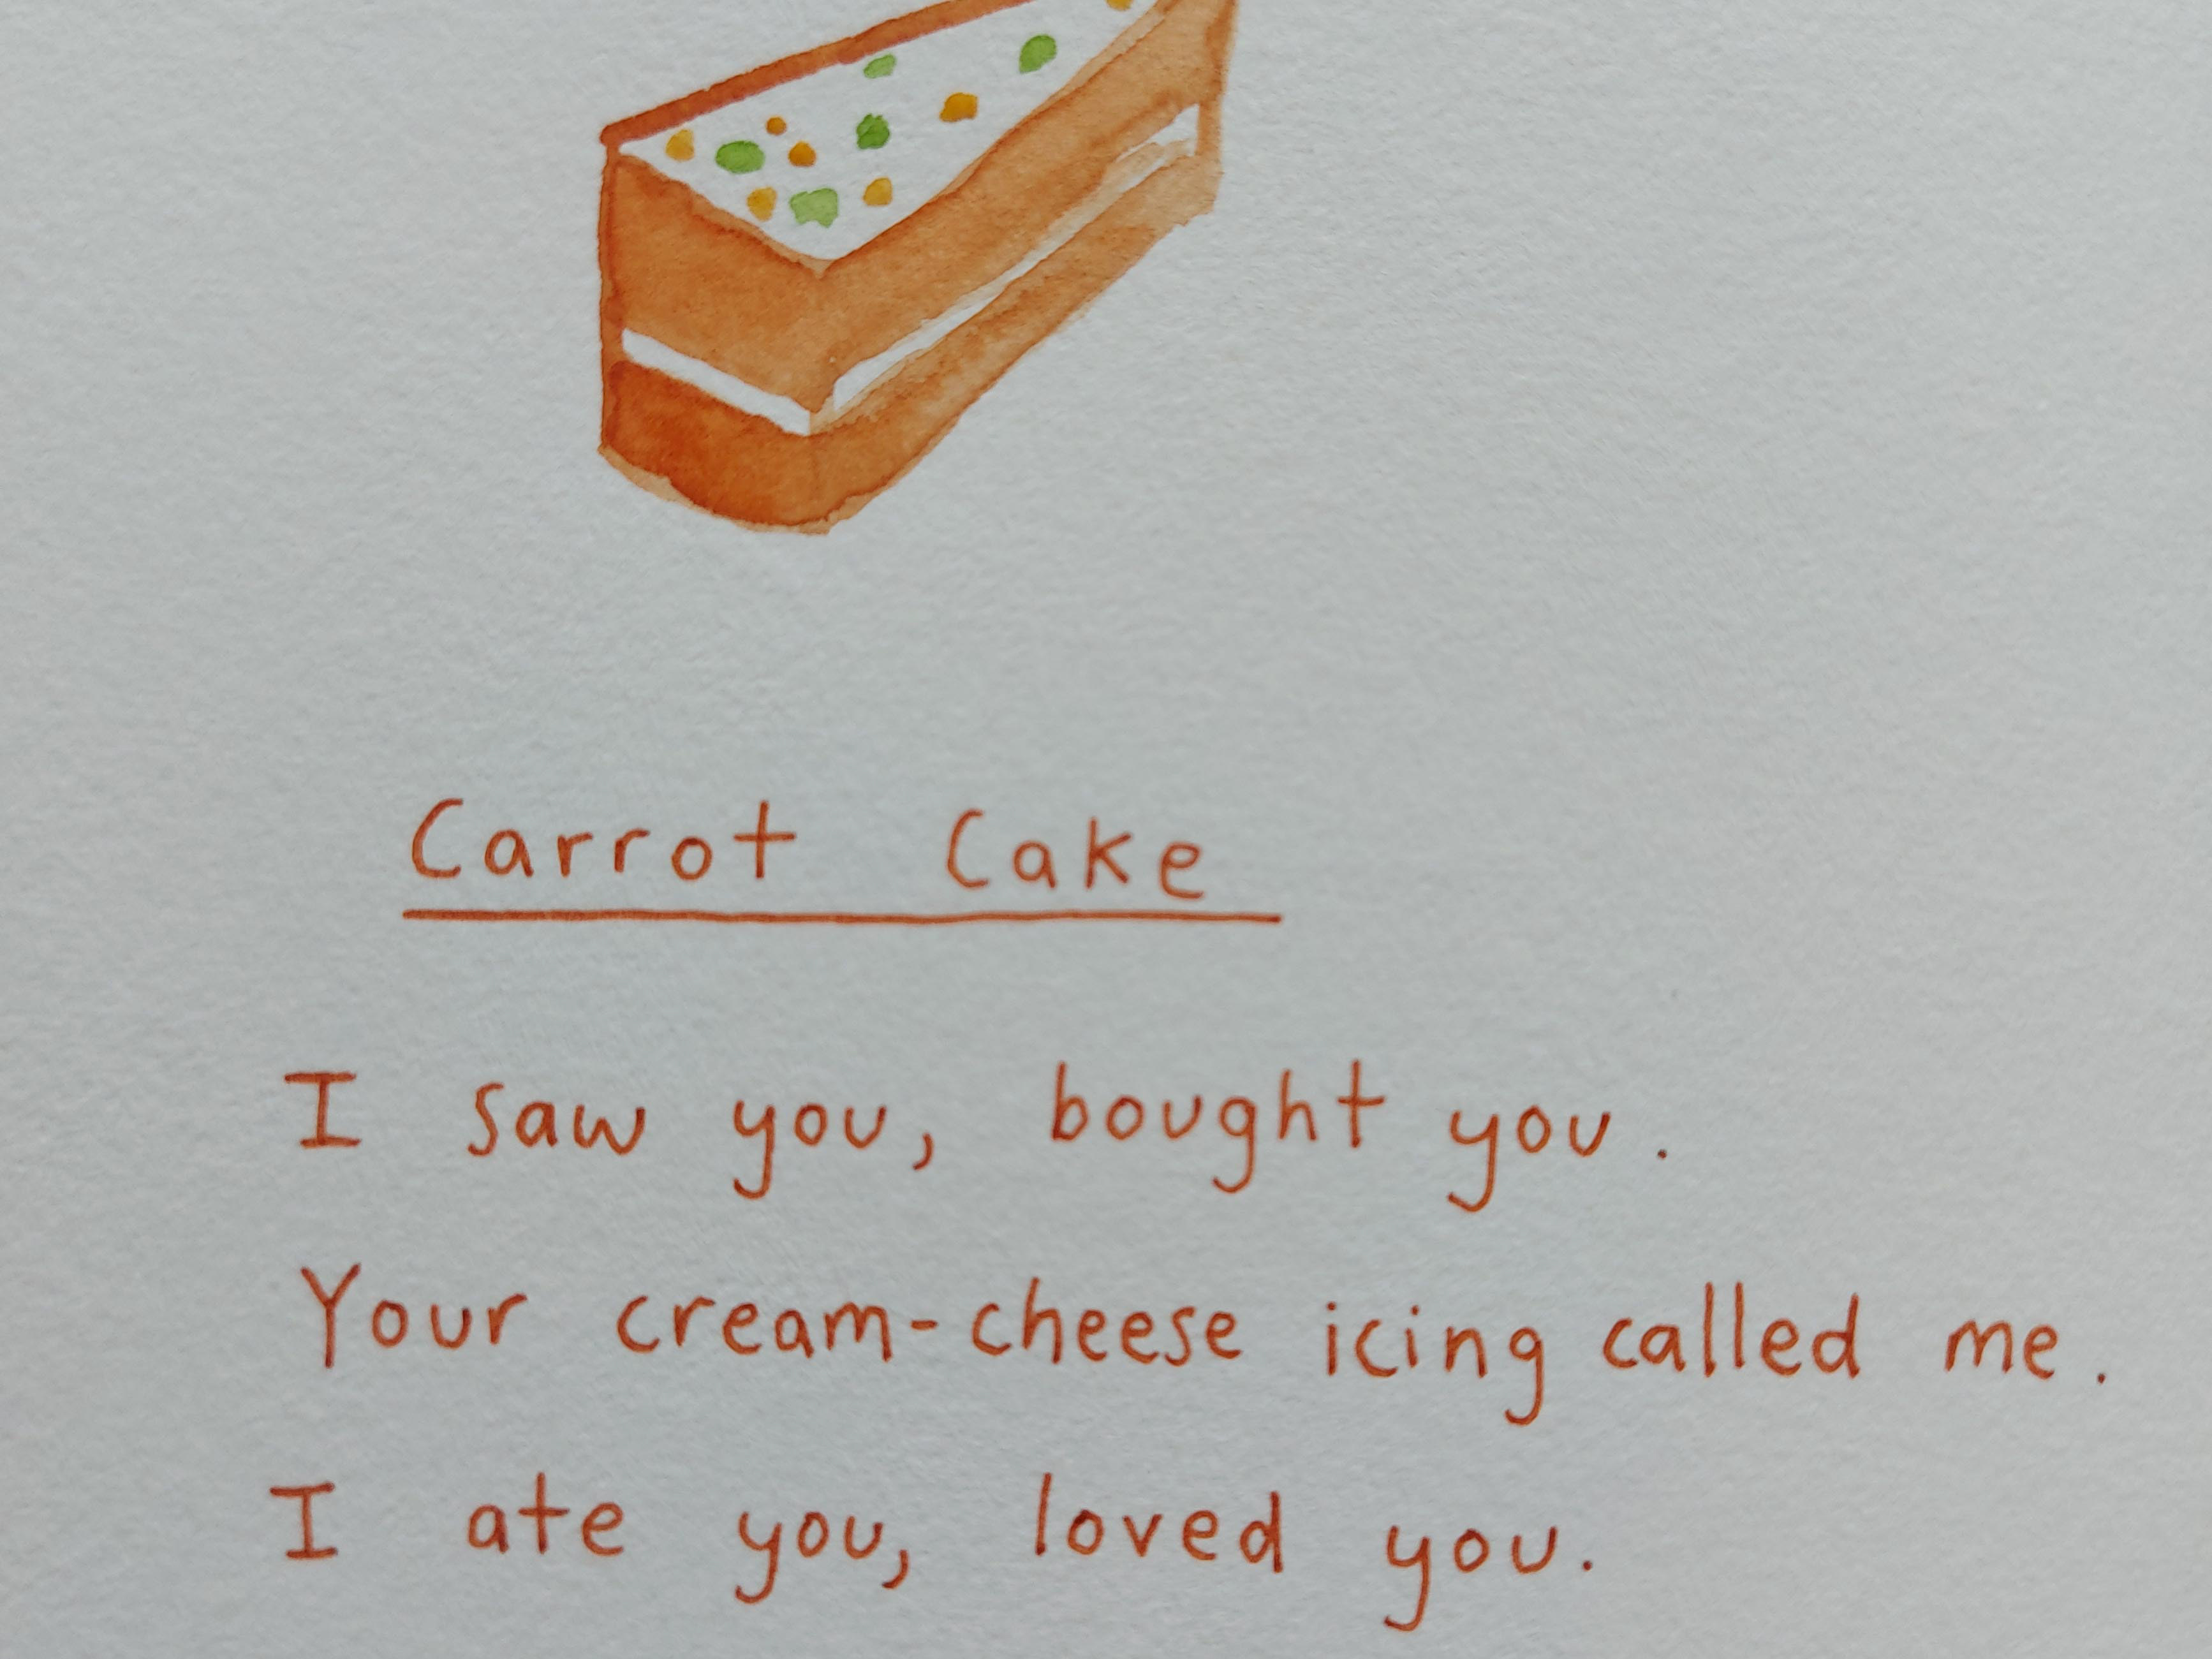 Carrot Cake
I saw you, bought you.
Your cream-cheese icing called me.
I ate you, loved you.